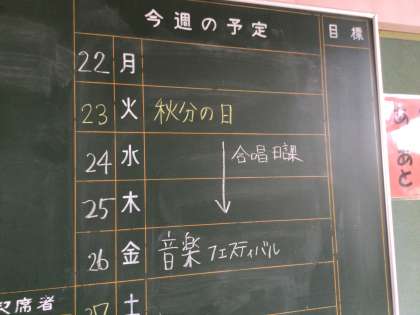 今週の予定
目標
22 月
23 火 秋分の日
24 水 合唱日課
25 木
26 金 音楽フェスティバル
27 土
席者
あ
あと